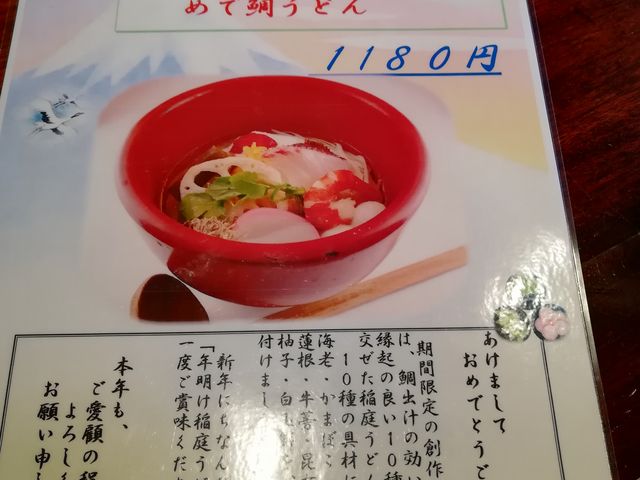 めて鯛うどん
1180円
あけまして
おめでとうご
期間限定の創作
は、鯛出汁の効い
縁起の良い10種
交ぜた稲庭うどん
10種の具材に
海老・かまぼこ
蓮根・牛蒡・昆
柚子・白玉
付けまし
新年にちなん
「年明け稲庭うど
一度ご賞味くだ
本年も、
ご愛顧の程
よろし
お願い申し